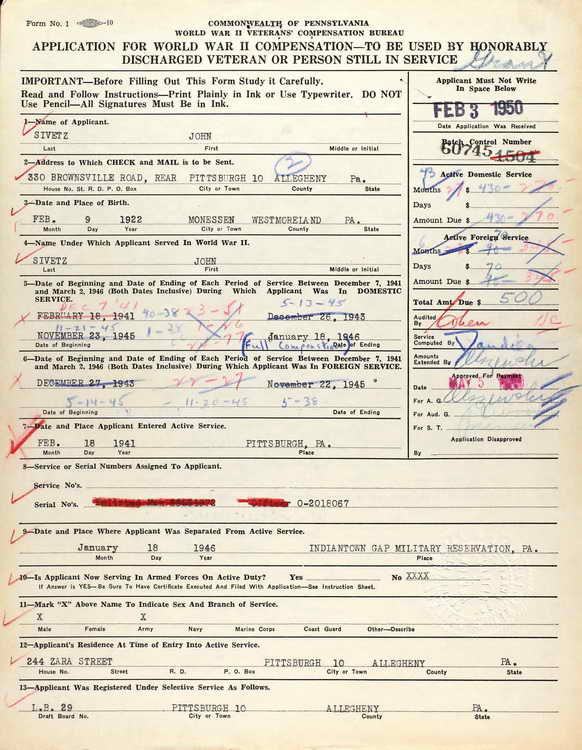 Form No. 1
COMMONWEALTH OF PENNSYLVANIA
WORLD WAR II VETERANS' COMPENSATION BUREAU
APPLICATION FOR WORLD WAR II COMPENSATION—TO BE USED BY HONORABLY
DISCHARGED VETERAN OR PERSON STILL IN SERVICE
IMPORTANT—Before Filling Out This Form Study it Carefully.
Read and Follow Instructions—Print Plainly in Ink or Use Typewriter. DO NOT
Use Pencil—All Signatures Must Be in Ink.
Applicant Must Not Write
In Space Below
FEB 3 1950
Date Application Was Received
Batch Control Number
60745 1504
1—Name of Applicant.
SIVETZ JOHN
Last First Middle or Initial
2—Address to Which CHECK and MAIL is to be Sent.
2
330 BROWNSVILLE ROAD, REAR PITTSBURGH 10 ALLEGHENY Pa.
House No. St. R. D. P. O. Box City or Town County State
3—Date and Place of Birth.
FEB. 9 1922 MONESSEN WESTMORELAND PA.
Month Day Year City or Town County State
4—Name Under Which Applicant Served In World War II.
SIVETZ JOHN
Last First Middle or Initial
Active Domestic Service
Months $ 430-
Days $
Amount Due $ 430-
Active Foreign Service
Months $
Days $ 70
Amount Due $
Total Amt. Due $ 500
5—Date of Beginning and Date of Ending of Each Period of Service Between December 7, 1941
and March 2, 1946 (Both Dates Inclusive) During Which Applicant Was In DOMESTIC
SERVICE.
DEC 7 '41 5-13-45
FEBRUARY 18, 1941 40-38 23-51 December 26, 1943
11-21-45
NOVEMBER 23, 1945 January 18, 1946
Date of Beginning (Full Compensation) Date of Ending
6—Date of Beginning and Date of Ending of Each Period of Service Between December 7, 1941
and March 2, 1946 (Both Dates Inclusive) During Which Applicant Was In FOREIGN SERVICE.
DECEMBER 27, 1943 22-27 November 22, 1945
5-14-45 - 11-20-45 5-38
Date of Beginning Date of Ending
Audited
By Cohen
Service
Computed By
Amounts
Extended By
Approved For Payment
Date MAY 5
For A. G.
For Aud. G.
For S. T.
Application Disapproved
By
7—Date and Place Applicant Entered Active Service.
FEB. 18 1941 PITTSBURGH, PA.
Month Day Year Place
8—Service or Serial Numbers Assigned To Applicant.
Service No's.
Serial No's. Officer O-2018067
9—Date and Place Where Applicant Was Separated From Active Service.
January 18 1946 INDIANTOWN GAP MILITARY RESERVATION, PA.
Month Day Year Place
10—Is Applicant Now Serving In Armed Forces On Active Duty? Yes No XXXX
If Answer is YES—Be Sure To Have Certificate Executed And Filed With Application—See Instruction Sheet.
11—Mark "X" Above Name To Indicate Sex And Branch of Service.
X X
Male Female Army Navy Marine Corps Coast Guard Other—Describe
12—Applicant's Residence At Time of Entry Into Active Service.
244 ZARA STREET PITTSBURGH 10 ALLEGHENY PA.
House No. Street R. D. P. O. Box City or Town County State
13—Applicant Was Registered Under Selective Service As Follows.
L.B. 29 PITTSBURGH 10 ALLEGHENY PA.
Draft Board No. City or Town County State